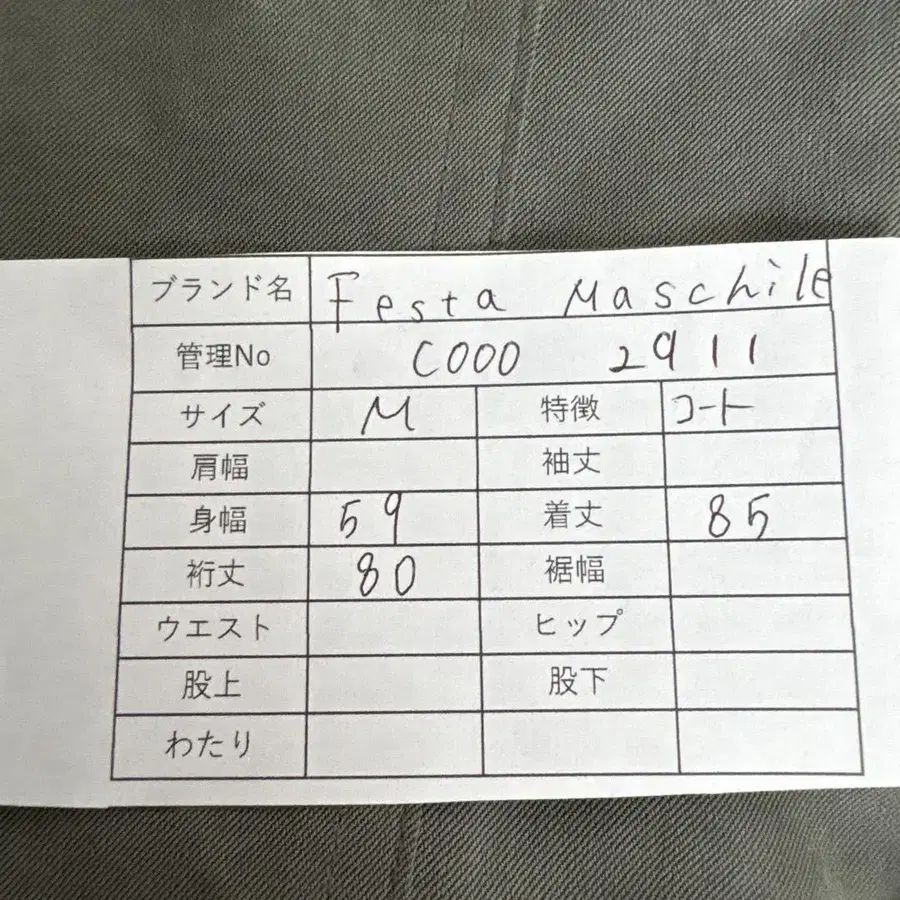 ブランド名 Festa Maschile
管理No C000 2911
サイズ M 特徴 コート
肩幅 袖丈
身幅 59 着丈 85
裄丈 80 裾幅
ウエスト ヒップ
股上 股下
わたり